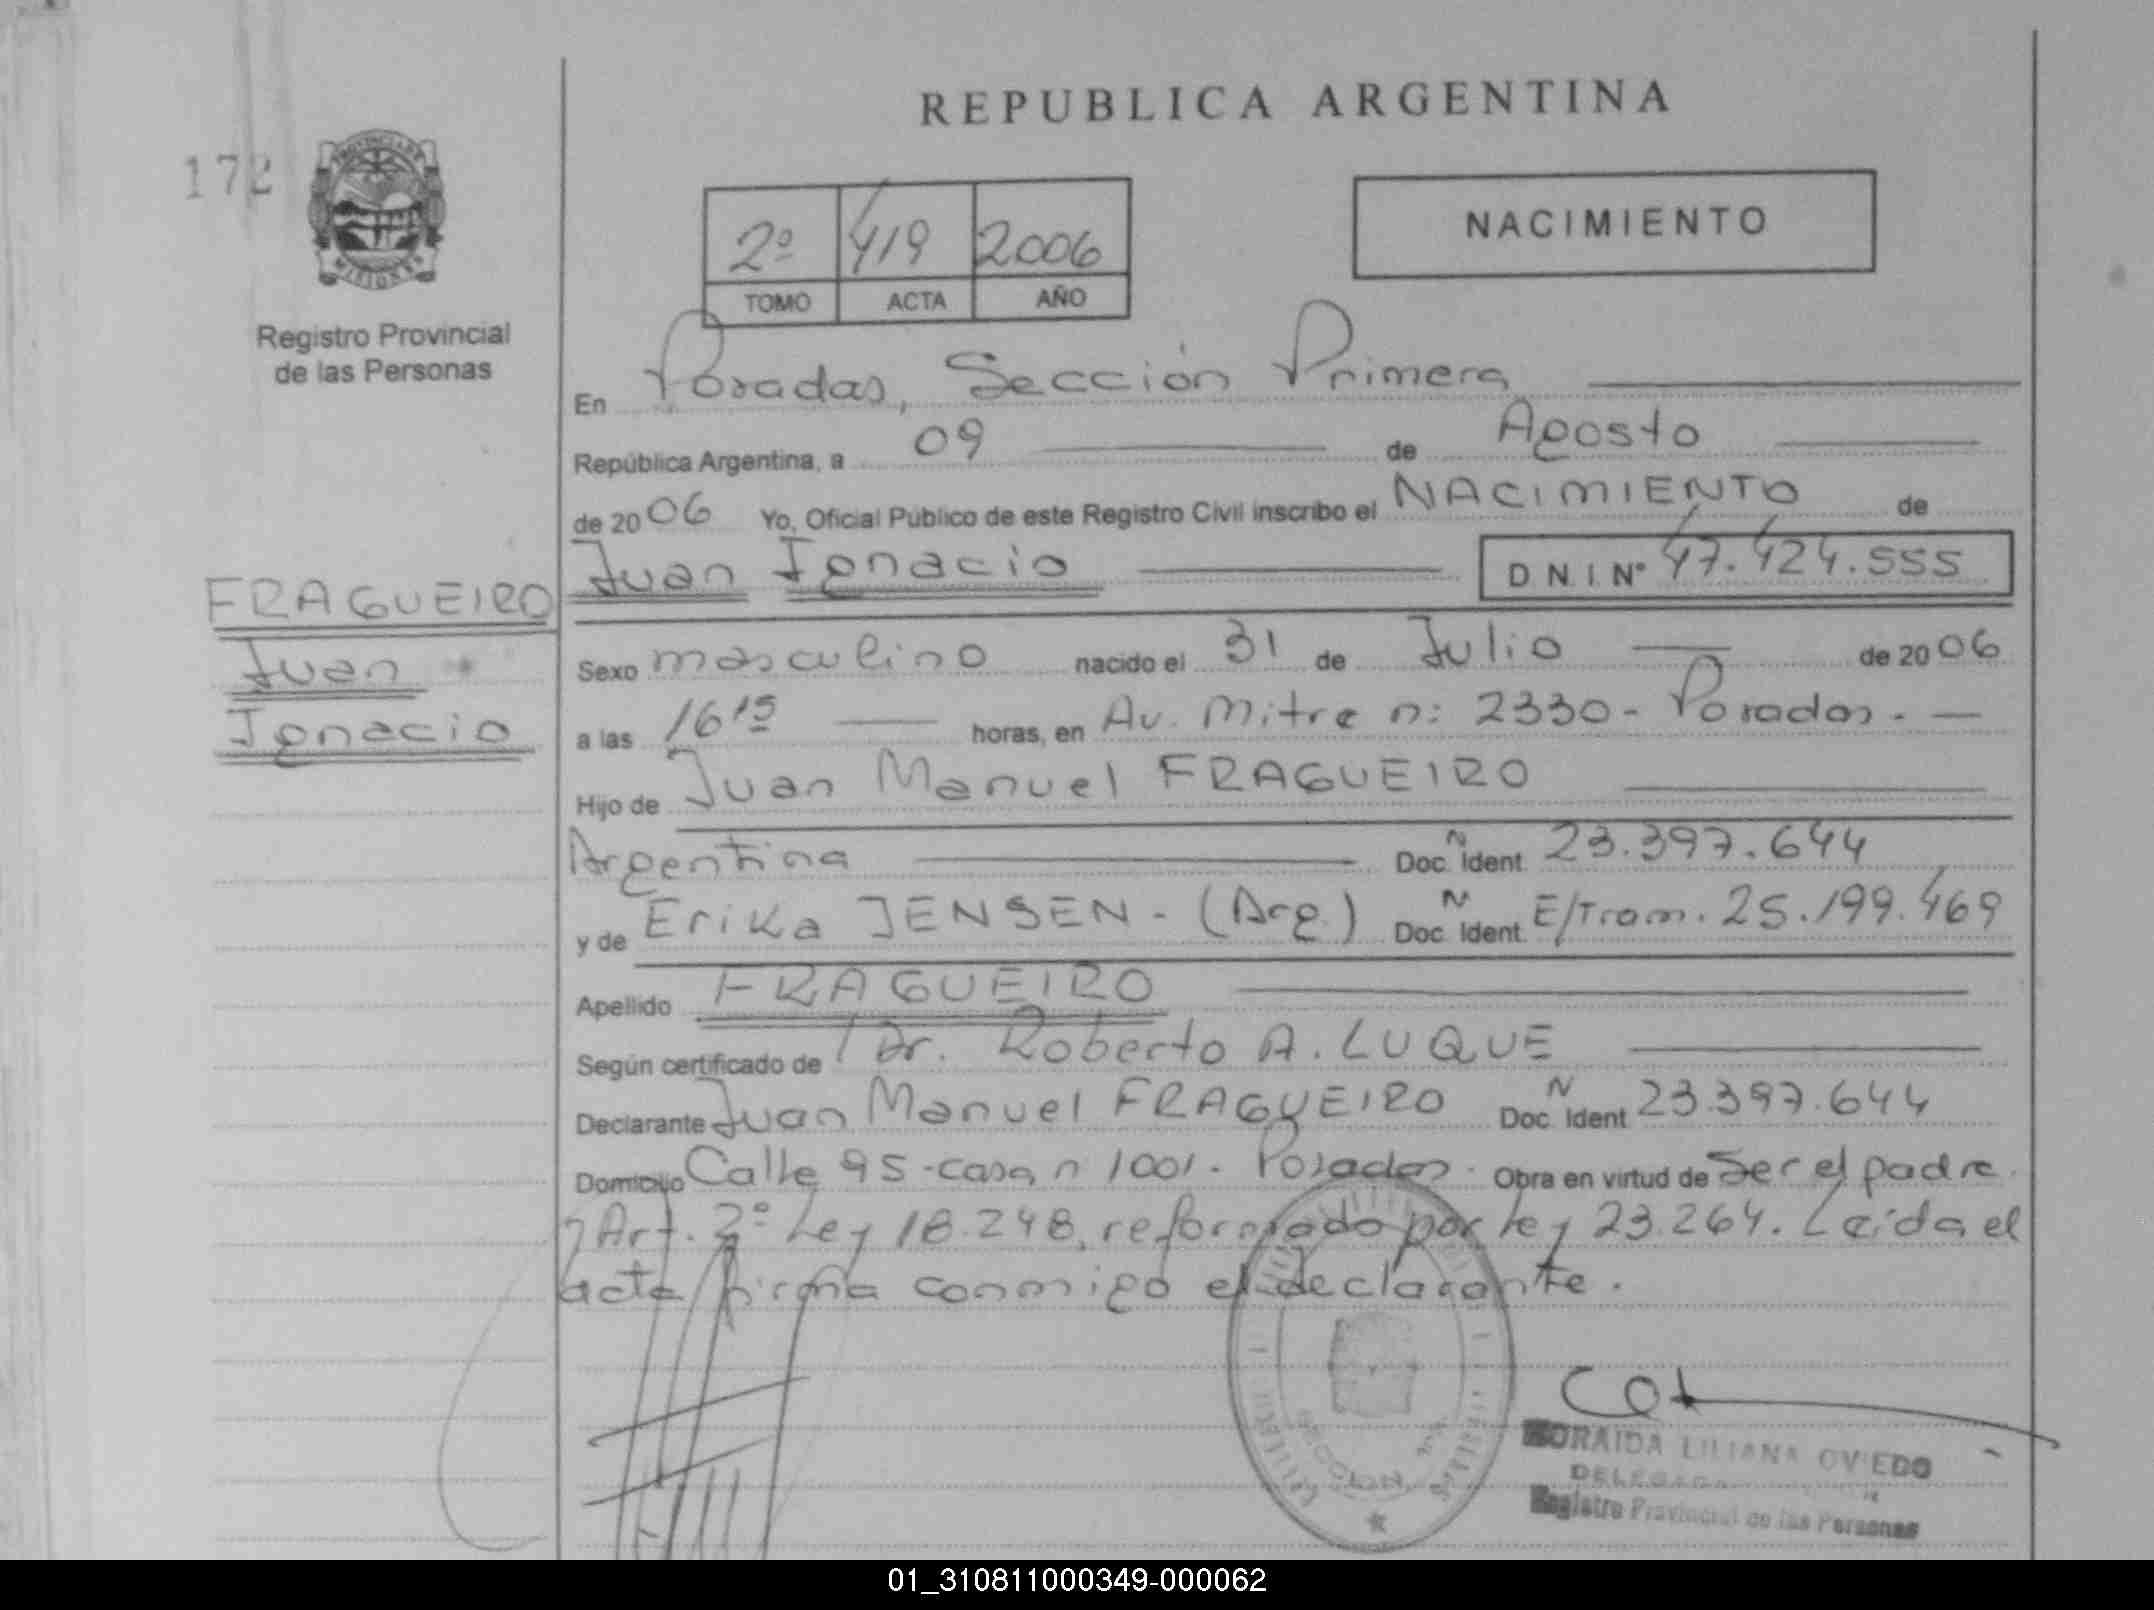 REPUBLICA ARGENTINA
172
PROVINCIA DE
MISIONES
Registro Provincial
de las Personas
2º 419 2006
TOMO ACTA AÑO
NACIMIENTO
En Posadas, Sección Primera
República Argentina, a 09 de Agosto
de 2006 Yo, Oficial Público de este Registro Civil inscribo el NACIMIENTO de
FRAGUEIRO
Juan
Ignacio
Juan Ignacio D N. I. Nº 47.424.555
Sexo masculino nacido el 31 de Julio de 2006
a las 16 15 horas, en Av. Mitre n: 2330 - Posadas. -
Hijo de Juan Manuel FRAGUEIRO
Argentina Doc. Ident. N 23.397.644
y de Erika JENSEN - (Arg.) Doc. Ident. N E/Tram. 25.199.469
Apellido FRAGUEIRO
Según certificado de Dr. Roberto A. LUQUE
Declarante Juan Manuel FRAGUEIRO Doc. Ident N 23.397.644
Domicilio Calle 95 - casa n 1001. Posadas. Obra en virtud de Ser el padre
y Art. 2º Ley 18.248, reformado por ley 23.264. Leída el
acta firma conmigo el declarante.
SECCION
ZORAIDA LILIANA OVIEDO
DELEGADA
Registro Provincial de las Personas
01_310811000349-000062